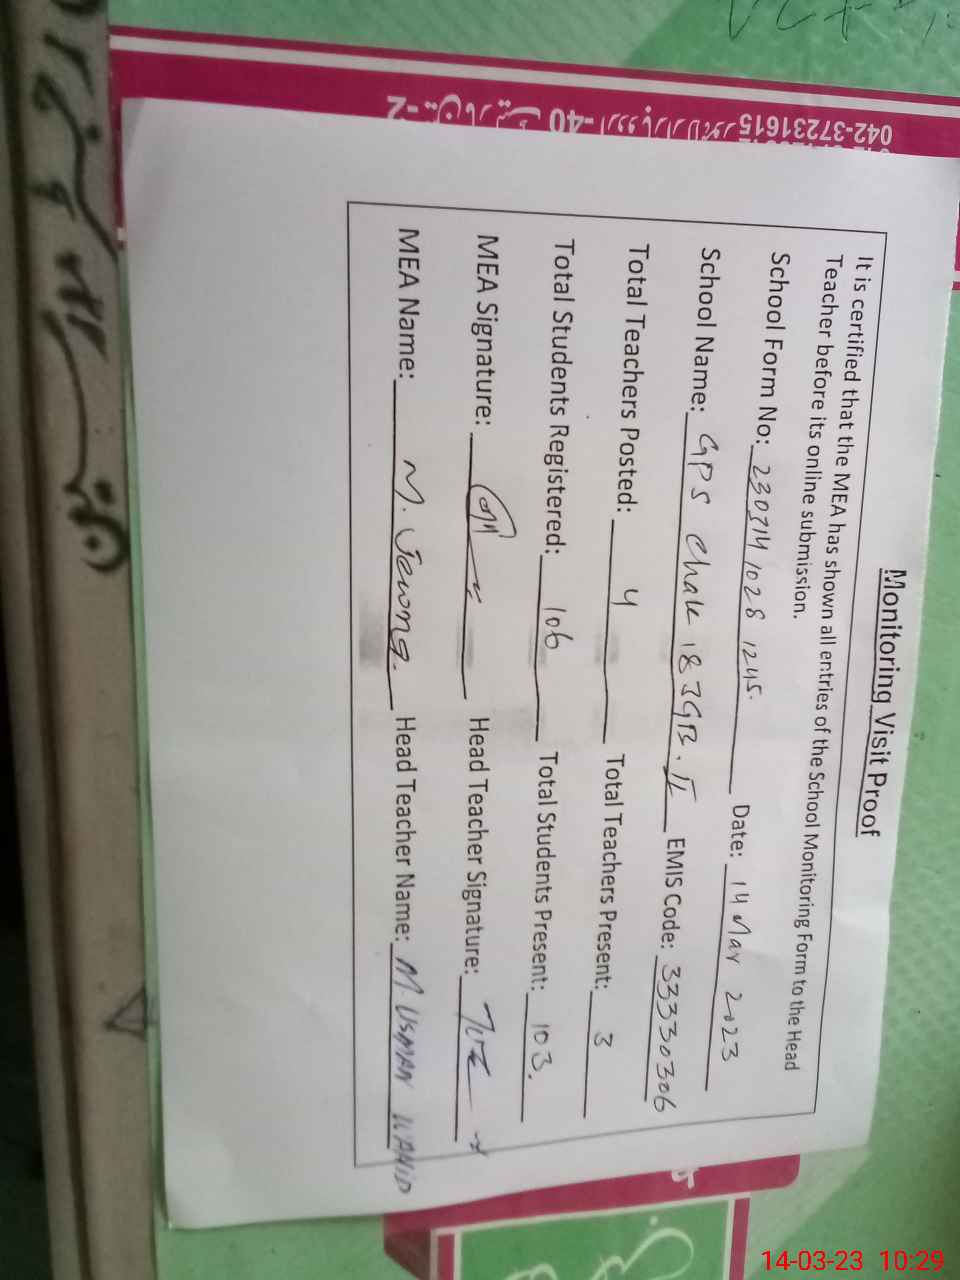 Monitoring Visit Proof
It is certified that the MEA has shown all entries of the School Monitoring Form to the Head
Teacher before its online submission.
School Form No: 230314 1028 1245. Date: 14 Mar 2023
School Name: GPS Chak 183GB. II EMIS Code: 33330306
Total Teachers Posted: 4 Total Teachers Present: 3
Total Students Registered: 106 Total Students Present: 103.
MEA Signature: Head Teacher Signature:
MEA Name: M. Head Teacher Name: M. USMAN
042-37231615
14-03-23 10:29